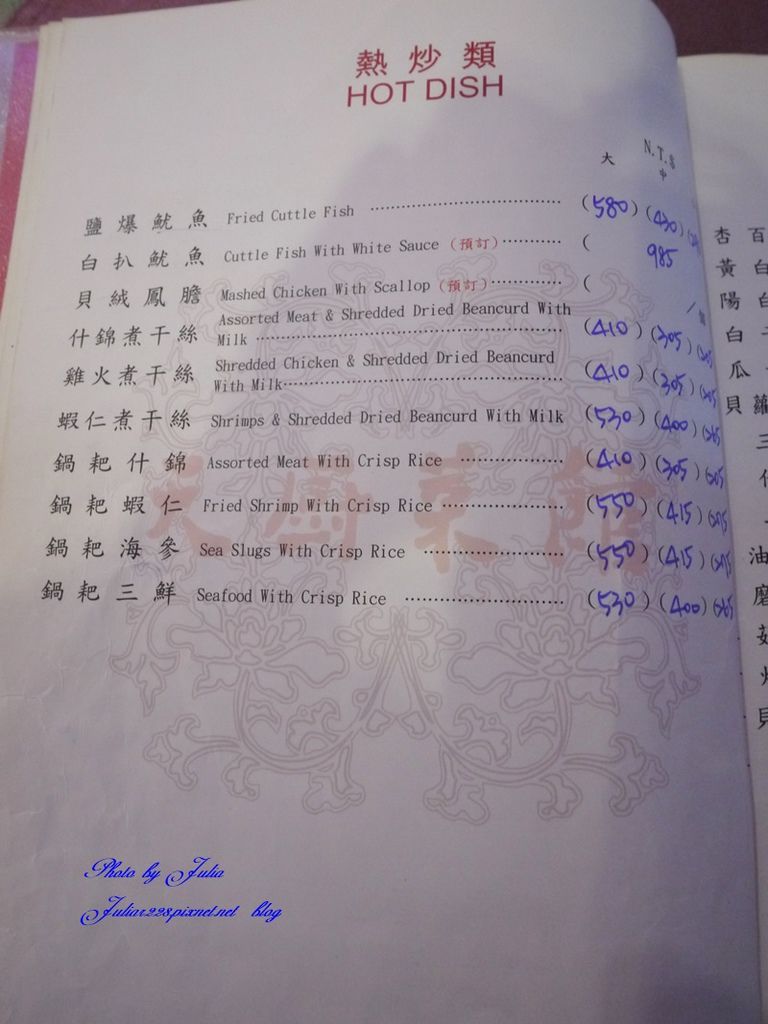 熱炒類
HOT DISH
大 N.T.$
中
鹽爆魷魚 Fried Cuttle Fish (580) (430)
白扒魷魚 Cuttle Fish With White Sauce (預訂) ( 985
貝絨鳳膽 Mashed Chicken With Scallop (預訂) (
什錦煮干絲 Assorted Meat & Shredded Dried Beancurd With
Milk (410) (305)
雞火煮干絲 Shredded Chicken & Shredded Dried Beancurd
With Milk (410) (305)
蝦仁煮干絲 Shrimps & Shredded Dried Beancurd With Milk (530) (400)
鍋耙什錦 Assorted Meat With Crisp Rice (410) (305)
鍋耙蝦仁 Fried Shrimp With Crisp Rice (550) (415)
鍋耙海參 Sea Slugs With Crisp Rice (550) (415)
鍋耙三鮮 Seafood With Crisp Rice (530) (400)
天廚菜館
杏百
黃白
陽白
白干
瓜
貝蘿
三
什
油
磨
Photo by Julia
Juliar228.pixnet.net blog